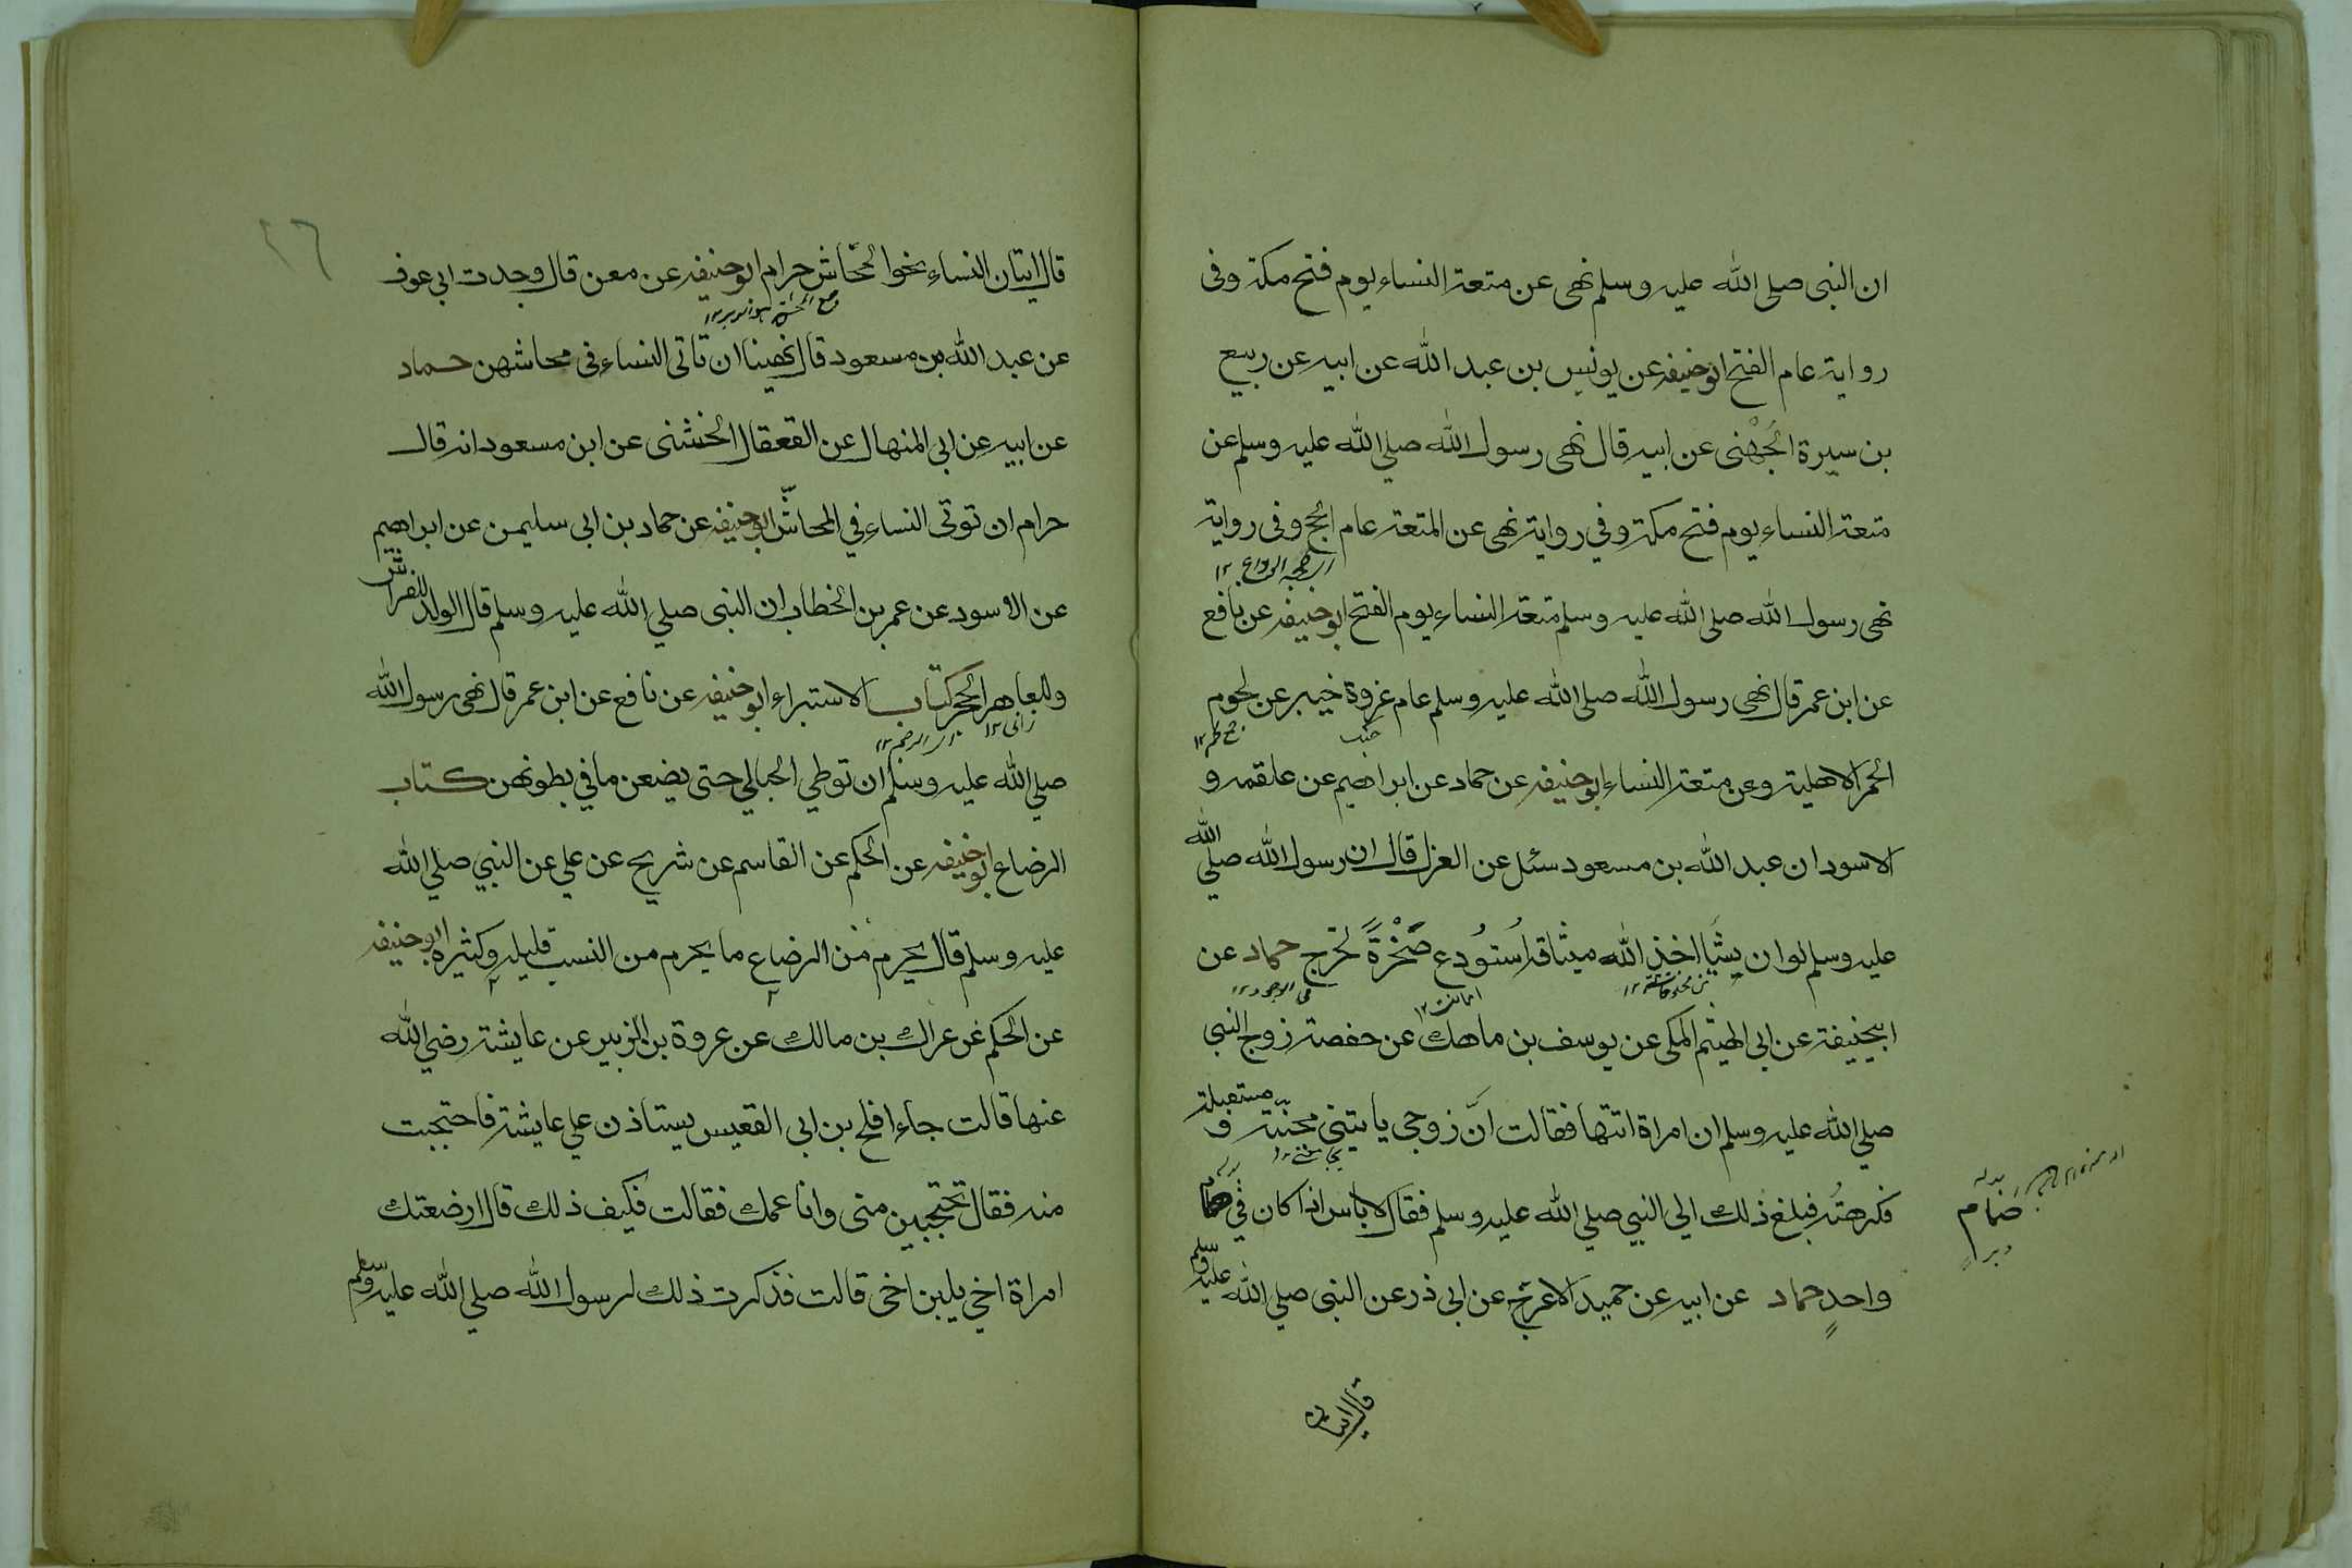 ان النبى صلى الله عليه وسلم نهى عن متعة النساء يوم فتح مكة وفى
رواية عام الفتح ابو حنيفه عن يونس بن عبد الله عن ابيه عن ربيع
بن سبرة الجُهْنى عن ابيه قال نهى رسول الله صلى الله عليه وسلم عن
متعة النساء يوم فتح مكة وفي رواية نهى عن المتعة عام الحج وفى رواية
اى حجة الوداع ١٢
نهى رسول الله صلى الله عليه وسلم متعة النساء يوم الفتح ابو حنيفه عن نافع
عن ابن عمر قال نهى رسول الله صلى الله عليه وسلم عام غزوة خيبر عن لحوم
الحمر الاهلية وعن متعة النساء ابو حنيفه عن حماد عن ابراهيم عن علقمه و
الاسود ان عبد الله بن مسعود سئل عن العزل قال ان رسول الله صلي الله
عليه وسلم لو ان شيئا اخذ الله ميثاقه اُستُودع صَخْرَةً لخرج حماد عن
ابيحنيفة عن ابى الهيثم المكى عن يوسف بن ماهك عن حفصة زوج النبي
صلي الله عليه وسلم ان امراة اتتها فقالت انّ زوجي ياتيني مجنبة و مستقبلة
فكرهتُه فبلغ ذلك الي النبي صلي الله عليه وسلم فقال لا باس اذا كان في صمام
صمام
واحدٍ حماد عن ابيه عن حميد الاعرج عن ابى ذر عن النبى صلي الله عليه وسلم
قال اتيان
٢٦
قال اتيان النساء نحو المحاش حرام ابو حنيفه عن معن قال وجدت ابي عوف
عن عبد الله بن مسعود قال نهينا ان تاتى النساء فى محاشهن حماد
عن ابيه عن ابى المنهال عن القعقال الخشنى عن ابن مسعود انه قال
حرام ان توتى النساء في المحاشّ ابو حنيفه عن حماد بن ابى سليمن عن ابراهيم
عن الاسود عن عمر بن الخطاب ان النبى صلي الله عليه وسلم قال الولد للفراش
وللعاهر الحجر كتاب الاستبراء ابو حنيفه عن نافع عن ابن عمر قال نهى رسول الله
زانى ١٢
صلي الله عليه وسلم ان توطي الحبالي حتى يضعن ما في بطونهن كتاب
الرضاع ابو حنيفه عن الحكم عن القاسم عن شريح عن علي عن النبي صلي الله
عليه وسلم قال يحرم من الرضاع ما يحرم من النسب قليله وكثيره ابو حنيفه
عن الحكم عن عراك بن مالك عن عروة بن الزبير عن عايشة رضي الله
عنها قالت جاء افلح بن ابى القعيس يستاذن علي عايشة فاحتجبت
منه فقال تحتجبين منى وانا عمك فقالت فكيف ذلك قال ارضعتك
امراة اخي بلبن اخى قالت فذكرت ذلك لرسول الله صلي الله عليه وسلم